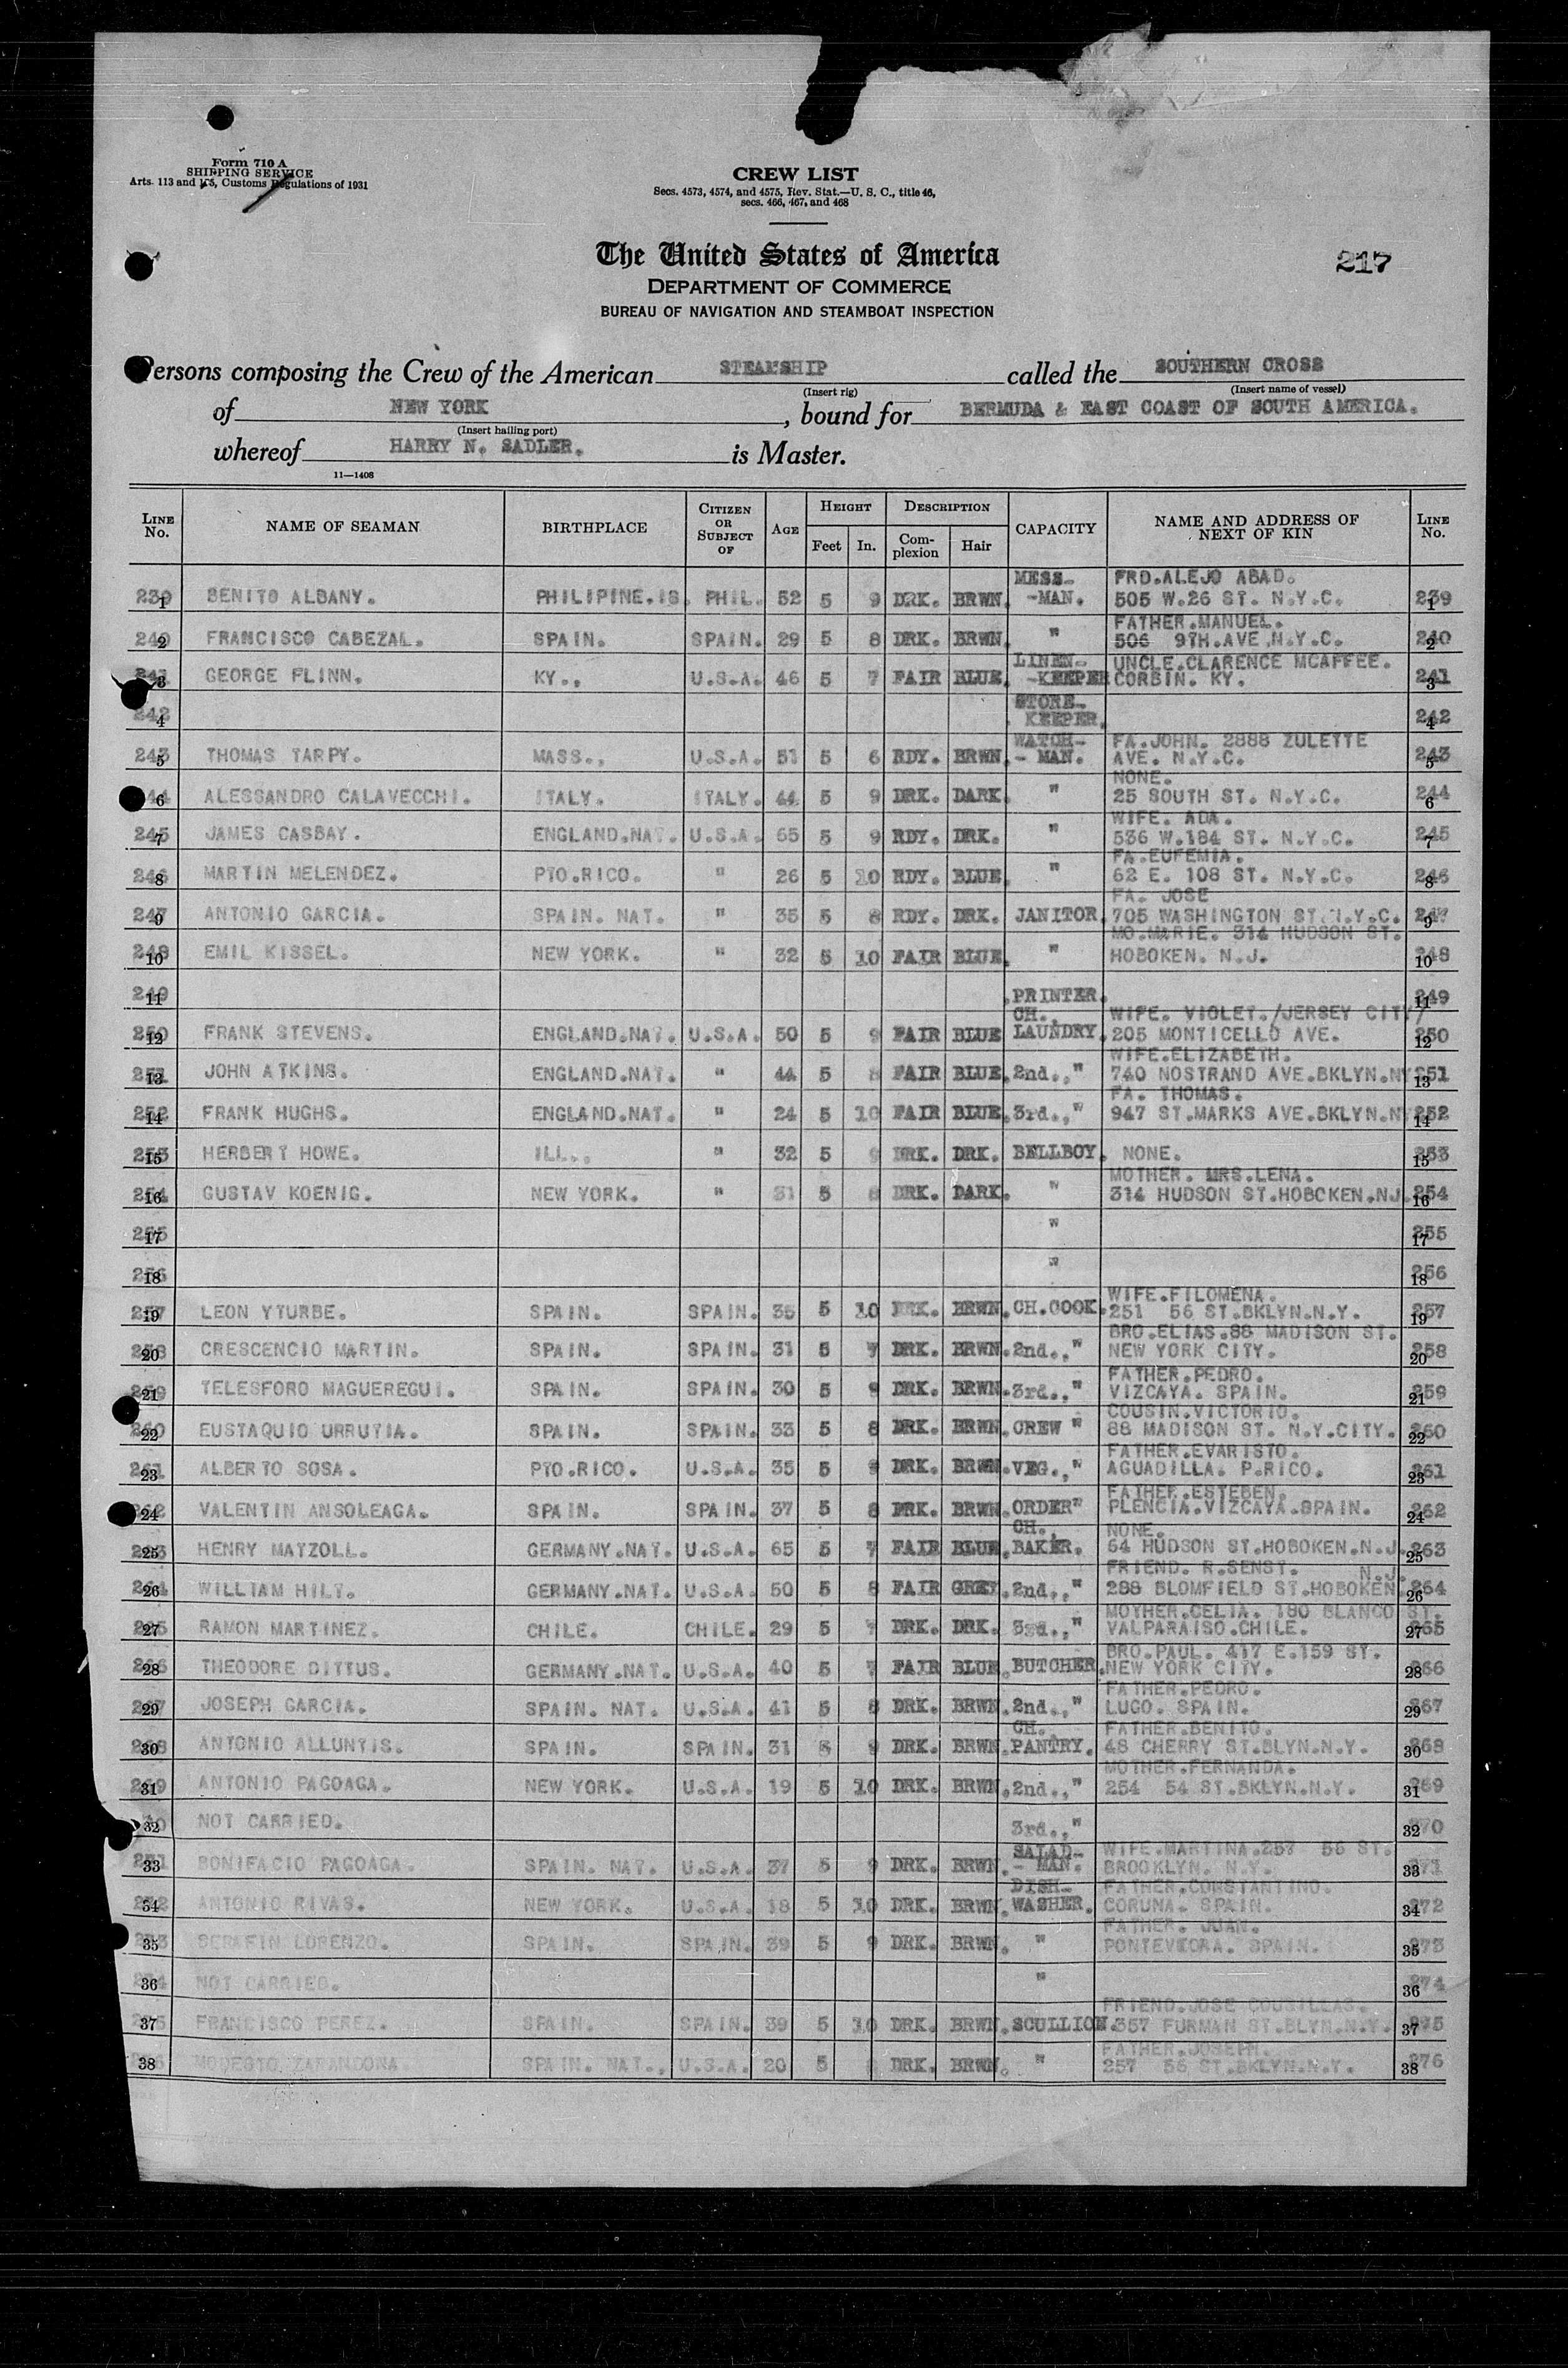 Form 710 A
SHIPPING SERVICE
Arts. 113 and 115, Customs Regulations of 1931
CREW LIST
Secs. 4573, 4574, and 4575, Rev. Stat.—U. S. C., title 46,
secs. 466, 467, and 468
The United States of America
DEPARTMENT OF COMMERCE
BUREAU OF NAVIGATION AND STEAMBOAT INSPECTION
217
Persons composing the Crew of the American STEAMSHIP called the SOUTHERN CROSS
(Insert rig) (Insert name of vessel)
of NEW YORK, bound for BERMUDA & EAST COAST OF SOUTH AMERICA.
(Insert hailing port)
whereof HARRY N. SADLER. is Master.
11—1408
LINE No. NAME OF SEAMAN BIRTHPLACE CITIZEN OR SUBJECT OF AGE HEIGHT Feet In. DESCRIPTION Complexion Hair CAPACITY NAME AND ADDRESS OF NEXT OF KIN LINE No.
239 1 BENITO ALBANY. PHILIPINE.IS. PHIL. 52 5 9 DRK. BRWN. MESS--MAN. FRD.ALEJO ABAD. 505 W.26 ST. N.Y.C. 239 1
240 2 FRANCISCO CABEZAL. SPAIN. SPAIN. 29 5 8 DRK. BRWN. " FATHER.MANUEL. 506 9TH.AVE.N.Y.C. 240 2
241 3 GEORGE FLINN. KY., U.S.A. 46 5 7 FAIR BLUE. LINEN--KEEPER UNCLE.CLARENCE MCAFFEE. CORBIN. KY. 241 3
242 4 STORE-KEEPER. 242 4
243 5 THOMAS TARPY. MASS., U.S.A. 51 5 6 RDY. BRWN. WATCH-- MAN. FA.JOHN. 2888 ZULETTE AVE. N.Y.C. 243 5
244 6 ALESSANDRO CALAVECCHI. ITALY. ITALY. 44 5 9 DRK. DARK. " NONE. 25 SOUTH ST. N.Y.C. 244 6
245 7 JAMES CASBAY. ENGLAND.NAT. U.S.A. 65 5 9 RDY. DRK. " WIFE. ADA. 536 W.184 ST. N.Y.C. 245 7
246 8 MARTIN MELENDEZ. PTO.RICO. " 26 5 10 RDY. BLUE. " FA.EUFEMIA. 62 E. 108 ST. N.Y.C. 246 8
247 9 ANTONIO GARCIA. SPAIN. NAT. " 35 5 8 RDY. DRK. JANITOR. FA. JOSE 705 WASHINGTON ST.N.Y.C. 247 9
248 10 EMIL KISSEL. NEW YORK. " 32 5 10 FAIR BLUE. " MO.MARIE. 314 HUDSON ST. HOBOKEN. N.J. 248 10
249 11 PRINTER. 249 11
250 12 FRANK STEVENS. ENGLAND.NAT. U.S.A. 50 5 9 FAIR BLUE CH., LAUNDRY. WIFE. VIOLET./JERSEY CITY/ 205 MONTICELLO AVE. 250 12
251 13 JOHN ATKINS. ENGLAND.NAT. " 44 5 8 FAIR BLUE. 2nd.," WIFE.ELIZABETH. 740 NOSTRAND AVE.BKLYN.NY 251 13
252 14 FRANK HUGHS. ENGLAND.NAT. " 24 5 10 FAIR BLUE. 3rd.," FA. THOMAS. 947 ST.MARKS AVE.BKLYN.NY 252 14
253 15 HERBERT HOWE. ILL., " 32 5 9 DRK. DRK. BELLBOY. NONE. 253 15
254 16 GUSTAV KOENIG. NEW YORK. " 31 5 8 DRK. DARK. " MOTHER. MRS.LENA. 314 HUDSON ST.HOBOKEN.NJ. 254 16
255 17 " 255 17
256 18 " 256 18
257 19 LEON YTURBE. SPAIN. SPAIN. 35 5 10 DRK. BRWN. CH.COOK. WIFE.FILOMENA. 251 56 ST.BKLYN.N.Y. 257 19
258 20 CRESCENCIO MARTIN. SPAIN. SPAIN. 31 5 7 DRK. BRWN. 2nd.," BRO.ELIAS.88 MADISON ST. NEW YORK CITY. 258 20
259 21 TELESFORO MAGUEREGUI. SPAIN. SPAIN. 30 5 9 DRK. BRWN. 3rd.," FATHER.PEDRO. VIZCAYA. SPAIN. 259 21
260 22 EUSTAQUIO URRUTIA. SPAIN. SPAIN. 33 5 8 DRK. BRWN. CREW " COUSIN.VICTORIO. 88 MADISON ST. N.Y.CITY. 260 22
261 23 ALBERTO SOSA. PTO.RICO. U.S.A. 35 5 9 DRK. BRWN. VEG.," FATHER.EVARISTO. AGUADILLA. P.RICO. 261 23
262 24 VALENTIN ANSOLEAGA. SPAIN. SPAIN. 37 5 8 DRK. BRWN. ORDER" FATHER.ESTEBEN. PLENCIA.VIZCAYA.SPAIN. 262 24
263 25 HENRY MATZOLL. GERMANY.NAT. U.S.A. 65 5 7 FAIR BLUE. CH., BAKER. NONE. 64 HUDSON ST.HOBOKEN.N.J. 263 25
264 26 WILLIAM HILT. GERMANY.NAT. U.S.A. 50 5 8 FAIR GREY. 2nd.," FRIEND. R.SENST. N.J. 288 BLOMFIELD ST.HOBOKEN. 264 26
265 27 RAMON MARTINEZ. CHILE. CHILE. 29 5 7 DRK. DRK. 3rd.," MOTHER.CELIA. 180 BLANCO ST. VALPARAISO.CHILE. 265 27
266 28 THEODORE DITTUS. GERMANY.NAT. U.S.A. 40 5 7 FAIR BLUE. BUTCHER. BRO.PAUL. 417 E.159 ST. NEW YORK CITY. 266 28
267 29 JOSEPH GARCIA. SPAIN. NAT. U.S.A. 41 5 8 DRK. BRWN. 2nd.," FATHER.PEDRO. LUGO. SPAIN. 267 29
268 30 ANTONIO ALLUNTIS. SPAIN. SPAIN. 31 5 9 DRK. BRWN. CH., PANTRY. FATHER.BENITO. 48 CHERRY ST.BLYN.N.Y. 268 30
269 31 ANTONIO PAGOAGA. NEW YORK. U.S.A. 19 5 10 DRK. BRWN. 2nd.," MOTHER.FERNANDA. 254 54 ST.BKLYN.N.Y. 269 31
270 32 NOT CARRIED. 3rd.," 270 32
271 33 BONIFACIO PAGOAGA. SPAIN. NAT. U.S.A. 37 5 9 DRK. BRWN. SALAD-- MAN. WIFE.MARTINA.257 56 ST. BROOKLYN. N.Y. 271 33
272 34 ANTONIO RIVAS. NEW YORK. U.S.A. 18 5 10 DRK. BRWN. DISH-WASHER. FATHER.CONSTANTINO. CORUNA. SPAIN. 272 34
273 35 SERAFIN LORENZO. SPAIN. SPAIN. 39 5 9 DRK. BRWN. " FATHER. JUAN. PONTEVEDRA. SPAIN. 273 35
274 36 NOT CARRIED. " 274 36
275 37 FRANCISCO PEREZ. SPAIN. SPAIN. 39 5 10 DRK. BRWN. SCULLION. FRIEND.JOSE COUSILLAS. 357 FURMAN ST.BLYN.N.Y. 275 37
276 38 MODESTO ZARANDONA. SPAIN. NAT., U.S.A. 20 5 DRK. BRWN. " FATHER.JOSEPH. 257 56 ST.BKLYN.N.Y. 276 38